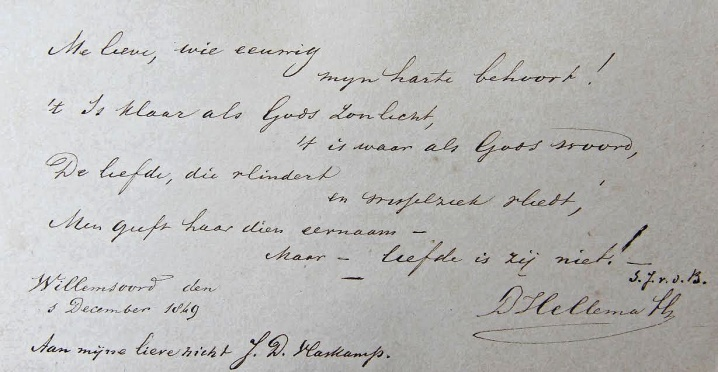 Me lieve, wie eeuwig
mijn harte behoort!
't Is klaar als Gods Zonlicht,
't is waar als Gods woord,
De liefde, die vlindert
en wisselziek vliedt,
Men geeft haar dien eernaam –
Maar – liefde is zij niet! –
S. J. v. d. B.
Willemsoord den
5 December 1849
D Hellema
Aan mijne lieve nicht J. D. Haskamp.